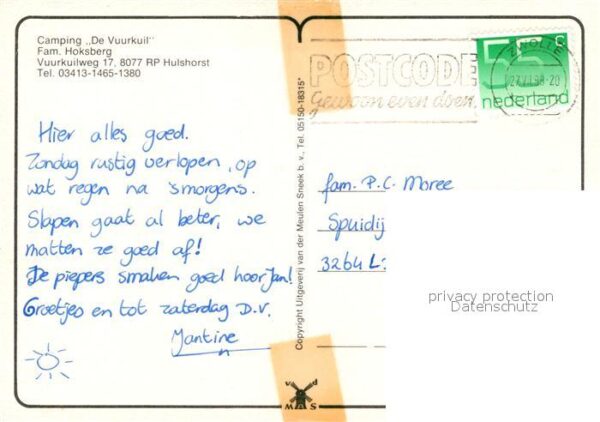 Camping „De Vuurkuil"
Fam. Hoksberg
Vuurkuilweg 17, 8077 RP Hulshorst
Tel. 03413-1465-1380
Hier alles goed.
Zondag rustig verlopen, op
wat regen na 's morgens.
Slapen gaat al beter, we
matten ze goed af!
De piepers smaken goed hoor Jan!
Groetjes en tot zaterdag D.V.
Jantine
Copyright Uitgeverij van der Meulen Sneek b. v., Tel. 05150-18315*
v d
MAS
POSTCODE
Gewoon even doen.
ZWOLLE
75 c
nederland
fam. P.C. Moree
Spuidij
3264 L
privacy protection
Datenschutz